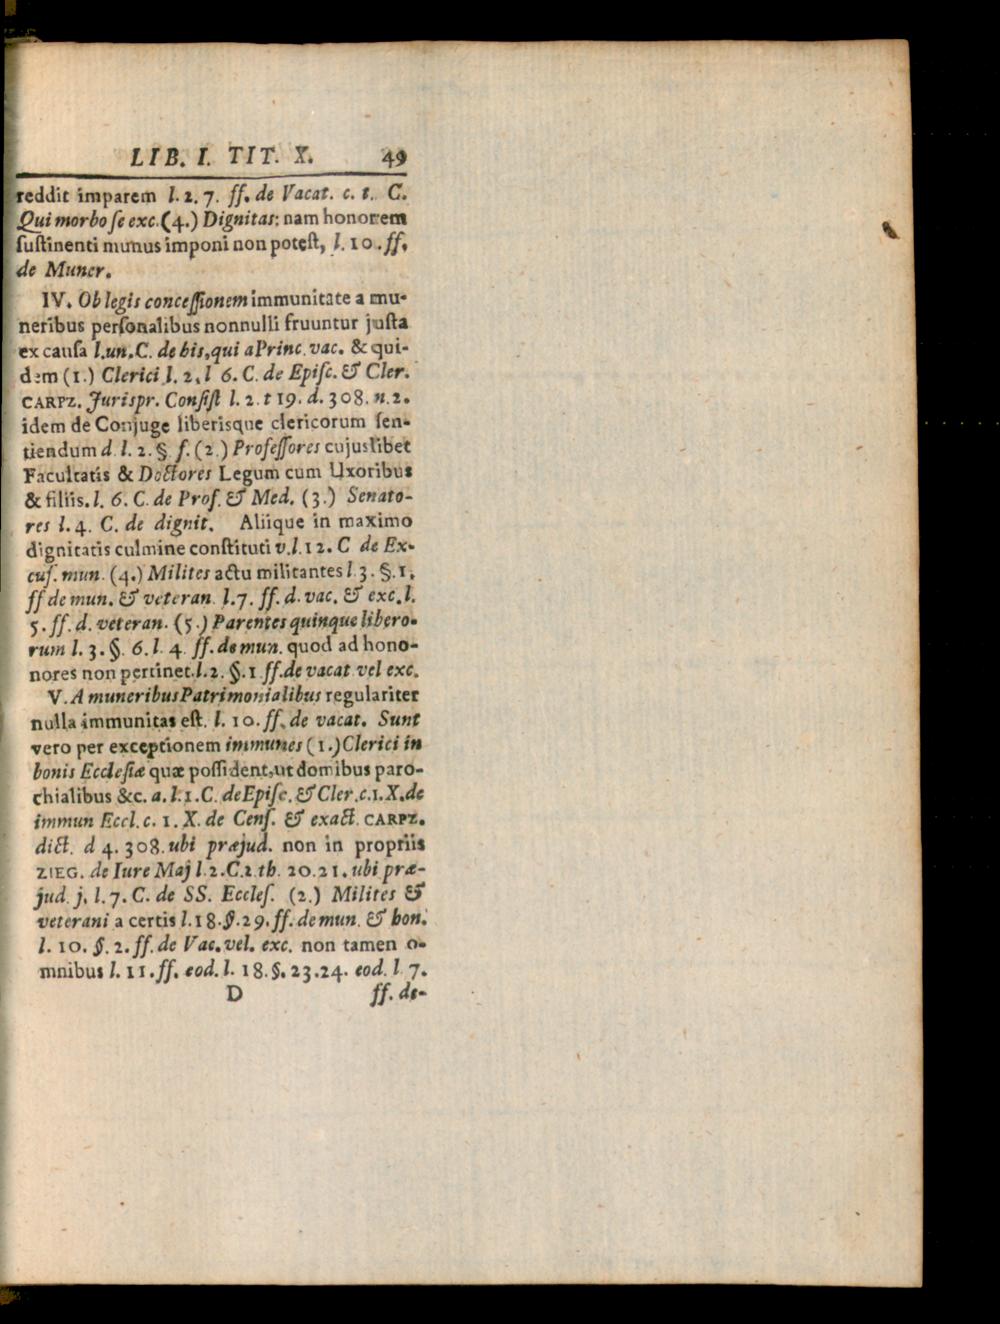 LIB. I. TIT. X. 49
reddit imparem l. 2. 7. ff. de Vacat. c. t. C.
Qui morbo ſe exc. (4.) Dignitas: nam honorem
ſuſtinenti munus imponi non poteſt, l. 10. ff.
de Muner.
IV. Ob legis conceſſionem immunitate a mu-
neribus perſonalibus nonnulli fruuntur juſta
ex cauſa l. un. C. de his, qui a Princ. vac. & qui-
dem (1.) Clerici l. 2. l 6. C. de Epiſc. & Cler.
CARPZ. Jurispr. Conſiſt l. 2. t 19. d. 308. n. 2.
idem de Conjuge liberisque clericorum ſen-
tiendum d. l. 2. §. f. (2.) Profeſſores cujuslibet
Facultatis & Doctores Legum cum Uxoribus
& filiis. l. 6. C. de Prof. & Med. (3.) Senato-
res l. 4. C. de dignit. Aliique in maximo
dignitatis culmine conſtituti v. l. 12. C de Ex-
cuſ. mun. (4.) Milites actu militantes l. 3. §. 1.
ff de mun. & veteran. l. 7. ff. d. vac. & exc. l.
5. ff. d. veteran. (5.) Parentes quinque libero-
rum l. 3. §. 6. l. 4. ff. de mun. quod ad hono-
nores non pertinet. l. 2. §. 1 ff. de vacat vel exc.
V. A muneribus Patrimonialibus regulariter
nulla immunitas eſt. l. 10. ff. de vacat. Sunt
vero per exceptionem immunes (1.) Clerici in
bonis Eccleſiæ quæ poſſident, ut domibus paro-
chialibus &c. a. l. 1. C. de Epiſc. & Cler. c. 1. X. de
immun Eccl. c. 1. X. de Cenſ. & exact. CARPZ.
dict. d 4. 308. ubi præjud. non in propriis
ZIEG. de Iure Maj l. 2. C. 2. th. 20. 21. ubi præ-
jud. j. l. 7. C. de SS. Eccleſ. (2.) Milites &
veterani a certis l. 18. §. 29. ff. de mun. & hon.
l. 10. §. 2. ff. de Vac. vel. exc. non tamen o-
mnibus l. 11. ff. eod. l. 18. §. 23. 24. eod. l 7.
D ff. de-